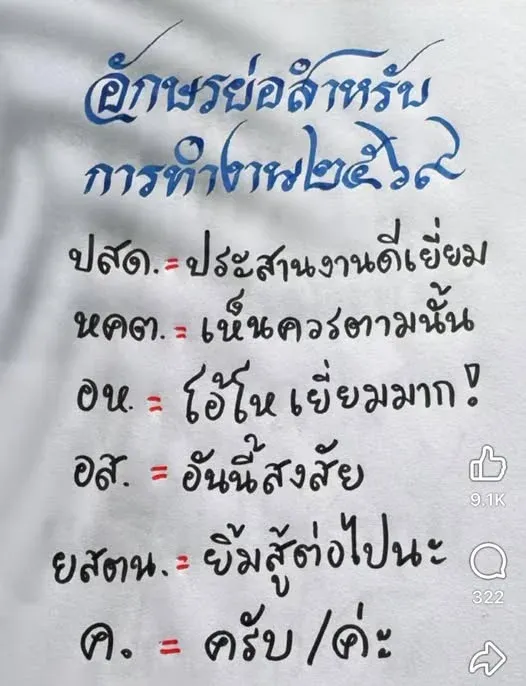 อักษรย่อสำหรับ
การทำงาน๒๕๖๙
ปสด. = ประสานงานดีเยี่ยม
หคต. = เห็นควรตามนั้น
อห. = โอ้โห เยี่ยมมาก!
อส. = อันนี้สงสัย
ยสตน. = ยิ้มสู้ต่อไปนะ
ค. = ครับ/ค่ะ
9.1K
322